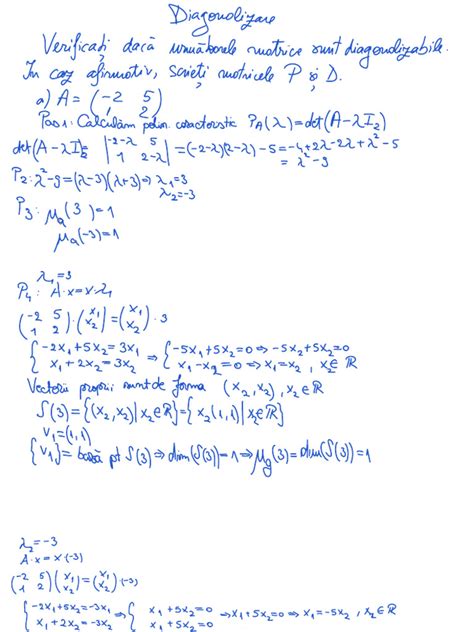 Diagonalizare
Verificați dacă următoarele matrice sunt diagonalizabile.
În caz afirmativ, scrieți matricele P și D.
a) A = (-2 5
1 2)
Pas 1: Calculăm polin. caracteristic P_A(λ) = det(A-λI_2)
det(A-λI_2) = |-2-λ 5
1 2-λ| = (-2-λ)(2-λ) - 5 = -4+2λ-2λ+λ²-5
= λ²-9
P_2: λ²-9 = (λ-3)(λ+3) ⇒ λ_1=3
λ_2=-3
P_3: μ_a(3) = 1
μ_a(-3) = 1
λ_1=3
P_4: A·x = x·λ_1
(-2 5
1 2) · (x_1
x_2) = (x_1
x_2) · 3
{-2x_1+5x_2 = 3x_1 ⇒ {-5x_1+5x_2=0 ⇔ -5x_2+5x_2=0
x_1+2x_2 = 3x_2 x_1-x_2=0 ⇔ x_1=x_2, x_2∈ℝ
Vectorii proprii sunt de forma (x_2, x_2), x_2∈ℝ
S(3) = {(x_2, x_2) | x_2∈ℝ} = {x_2(1,1) | x_2∈ℝ}
v_1=(1,1)
{v_1} = bază pt S(3) ⇒ dim(S(3)) = 1 ⇒ μ_g(3) = dim(S(3)) = 1
λ_2=-3
A·x = x·(-3)
(-2 5
1 2) (x_1
x_2) = (x_1
x_2) ·(-3)
{-2x_1+5x_2 = -3x_1 ⇒ { x_1+5x_2=0 ⇒ x_1+5x_2=0 ⇔ x_1=-5x_2, x_2∈ℝ
x_1+2x_2 = -3x_2 x_1+5x_2=0